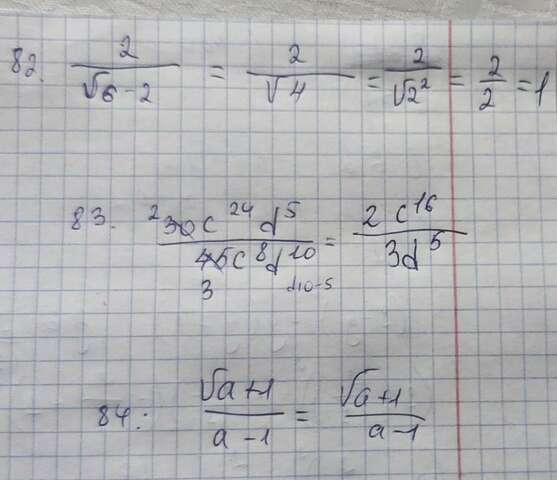 82. 2/√6-2 = 2/√4 = 2/√2² = 2/2 = 1
83. ²30c²⁴d⁵/45c⁸d¹⁰ = 2c¹⁶/3d⁵
3 d10-5
84: √a+1/a-1 = √a+1/a-1